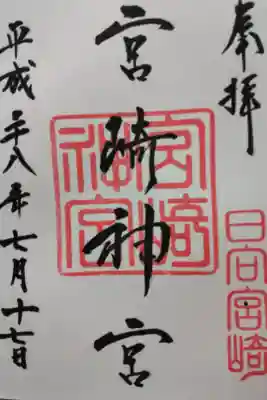 奉拝
日向宮崎
宮崎神宮
宮崎神宮
平成二十八年七月十七日